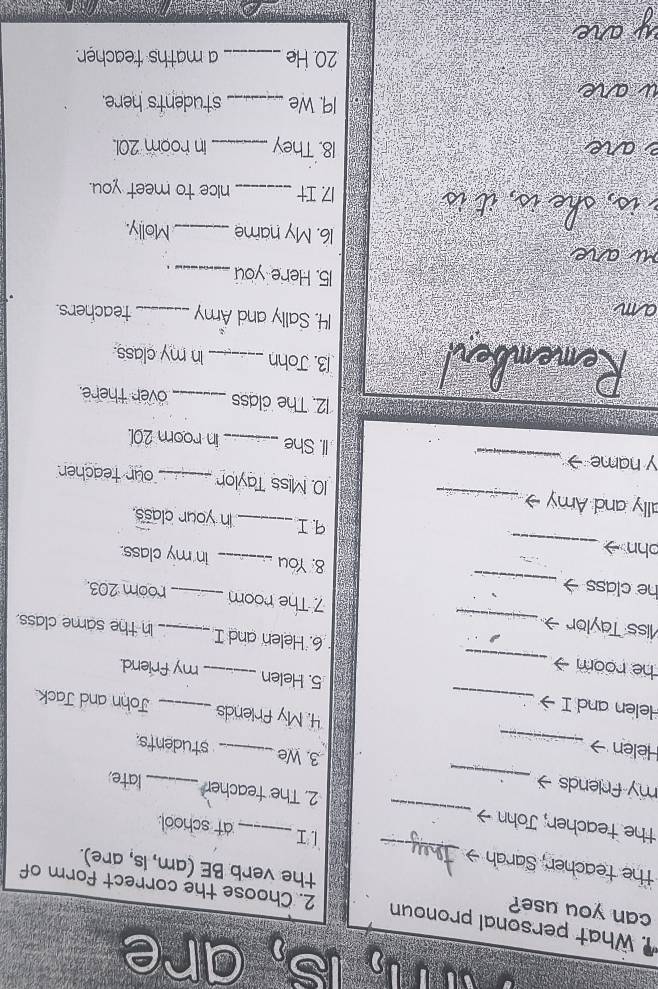 is, are
1. What personal pronoun
can you use?
the teacher, Sarah → they
the teacher, John → ______
my friends → ______
Helen → ______
Helen and I → ______
the room → ______
Miss Taylor → ______
he class → ______
ohn → ______
ally and Amy → ______
y name → ______
Remember!
am
ou are
is, she is, it is
e are
u are
ey are
2. Choose the correct form of
the verb BE (am, is, are).
1. I ______ at school.
2. The teacher ______ late.
3. We ______ students.
4. My friends ______ John and Jack.
5. Helen ______ my friend.
6. Helen and I ______ in the same class.
7. The room ______ room 203.
8. You ______ in my class.
9. I ______ in your class.
10. Miss Taylor ______ our teacher.
11. She ______ in room 201.
12. The class ______ over there.
13. John ______ in my class.
14. Sally and Amy ______ teachers.
15. Here you ______.
16. My name ______ Molly.
17. It ______ nice to meet you.
18. They ______ in room 201.
19. We ______ students here.
20. He ______ a maths teacher.